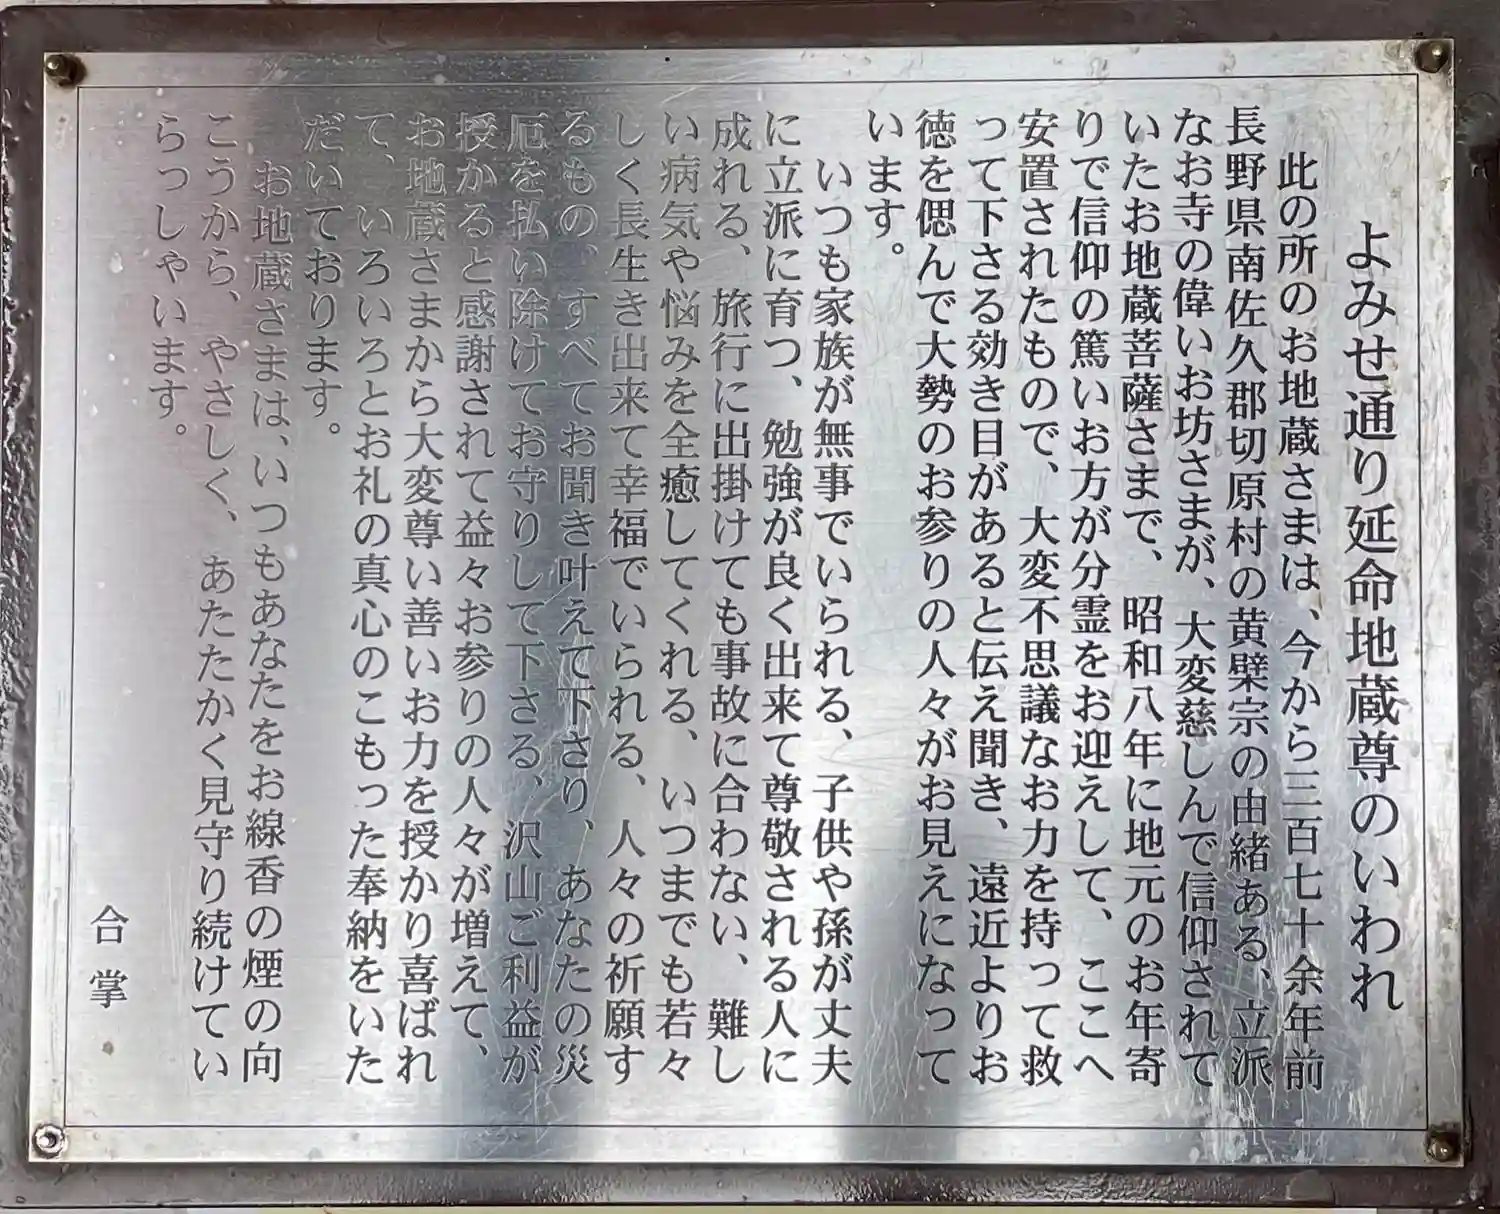 よみせ通り延命地蔵尊のいわれ
此の所のお地蔵さまは、今から三百七十余年前
長野県南佐久郡切原村の黄檗宗の由緒ある、立派
なお寺の偉いお坊さまが、大変慈しんで信仰されて
いたお地蔵菩薩さまで、昭和八年に地元のお年寄
りで信仰の篤いお方が分霊をお迎えして、ここへ
安置されたもので、大変不思議なお力を持って救
って下さる効き目があると伝え聞き、遠近よりお
徳を偲んで大勢のお参りの人々がお見えになって
います。
いつも家族が無事でいられる、子供や孫が丈夫
に立派に育つ、勉強が良く出来て尊敬される人に
成れる、旅行に出掛けても事故に合わない、難し
い病気や悩みを全癒してくれる、いつまでも若々
しく長生き出来て幸福でいられる、人々の祈願す
るもの、すべてお聞き叶えて下さり、あなたの災
厄を払い除けてお守りして下さる、沢山ご利益が
授かると感謝されて益々お参りの人々が増えて、
お地蔵さまから大変尊い善いお力を授かり喜ばれ
て、いろいろとお礼の真心のこもった奉納をいた
だいております。
お地蔵さまは、いつもあなたをお線香の煙の向
こうから、やさしく、あたたかく見守り続けてい
らっしゃいます。
合掌